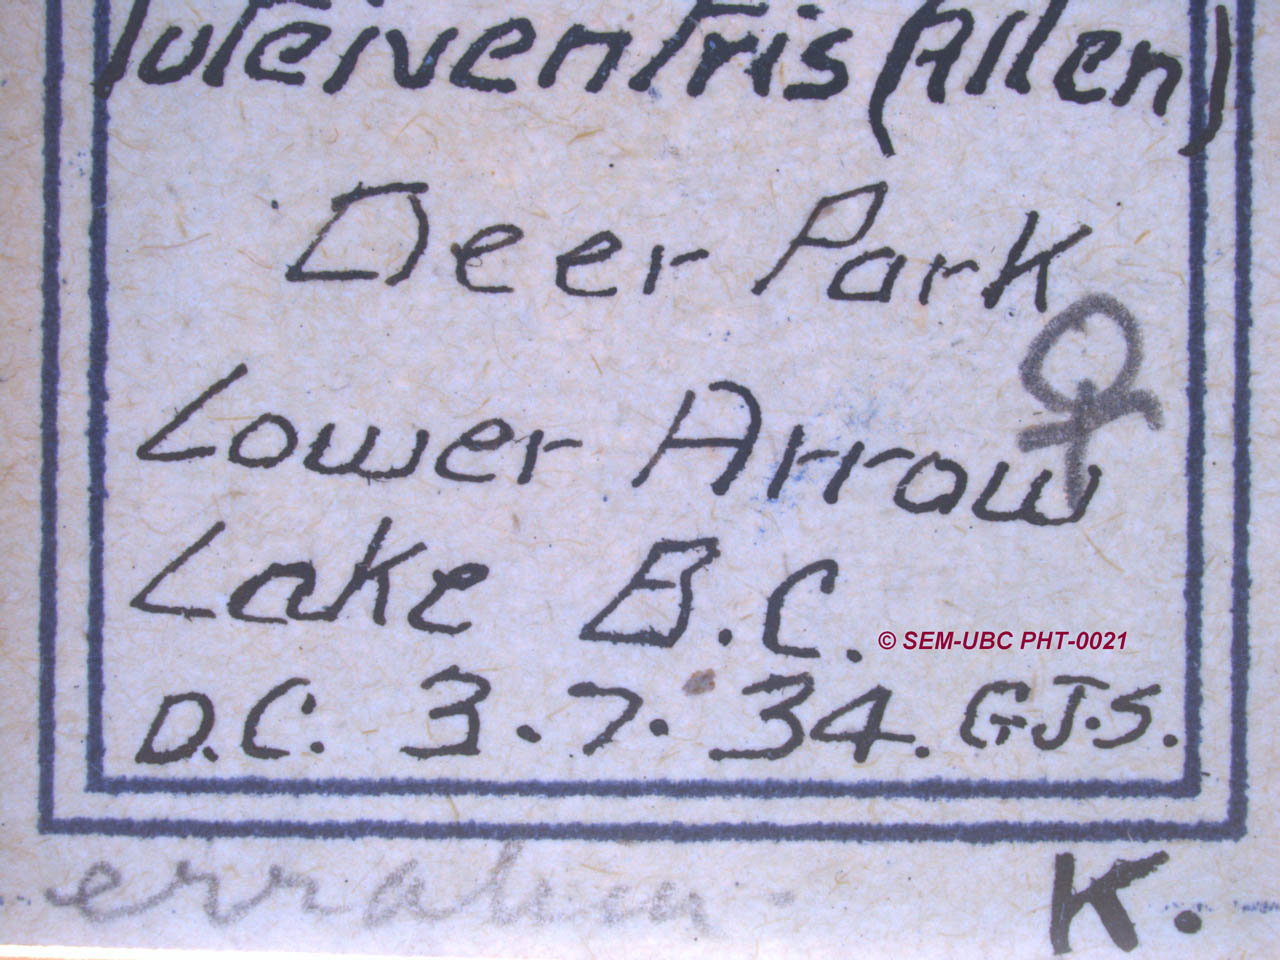 luteiventris (Allen)
Deer Park
♀
Lower Arrow
Lake B.C.
© SEM-UBC PHT-0021
D.C. 3.7.34. G.J.S.
K.